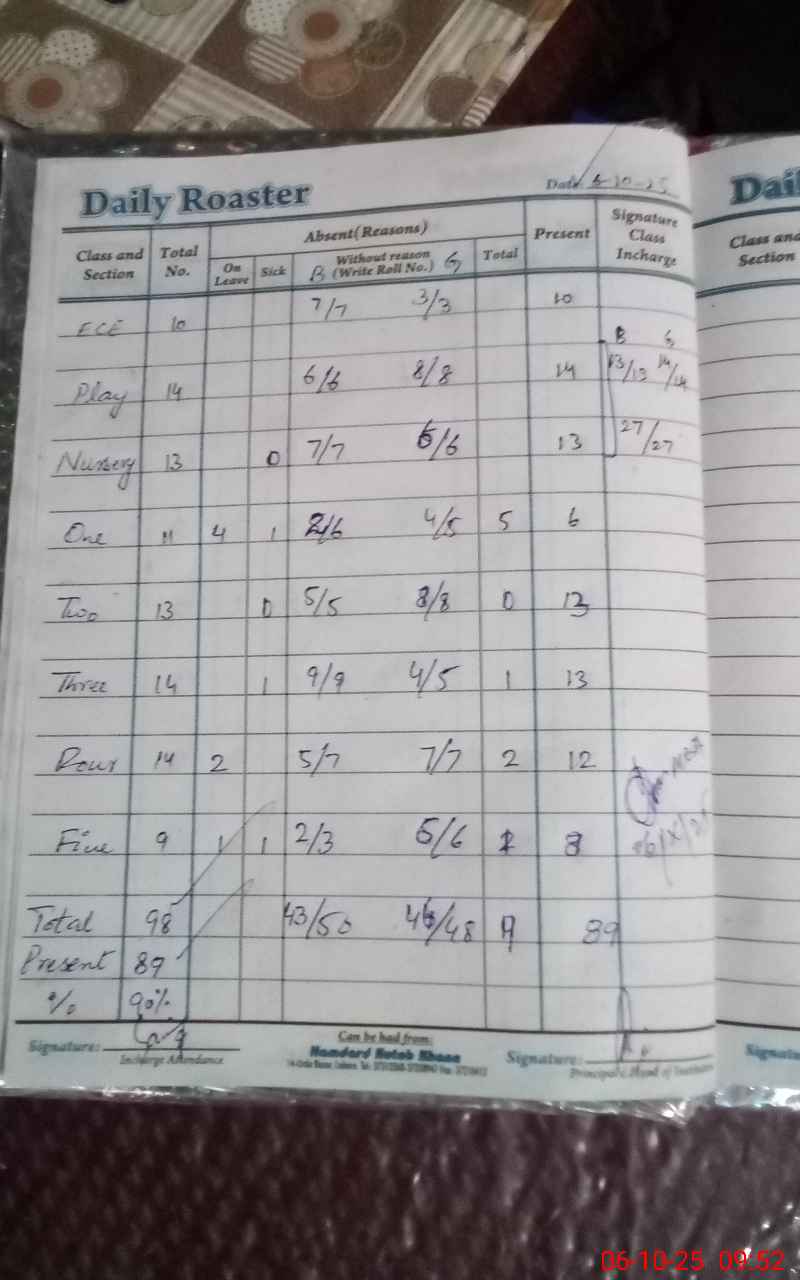 Daily Roaster
Date 6-10-25
Class and Section Total No. Absent(Reasons) Present Signature Class Incharge
On Leave Sick B Without reason (Write Roll No.) G Total
ECE 10 7/7 3/3 10
B G
Play 14 6/6 8/8 14 13/13 14/14
Nursery 13 0 7/7 6/6 13 27/27
One 11 4 1 2/6 4/5 5 6
Two 13 0 5/5 8/8 0 13
Three 14 1 9/9 4/5 1 13
Four 14 2 5/7 7/7 2 12
Five 9 1 1 2/3 6/6 1 8
06/X/25
Total 98 43/50 46/48 9 89
Present 89
% 90%
Signature: Can be had from: Signature:
Incharge Attendance Hamdard Kutab Khana
Principal / Head of Institution
Dail
Class and
Section
Signatu
06-10-25 09:52